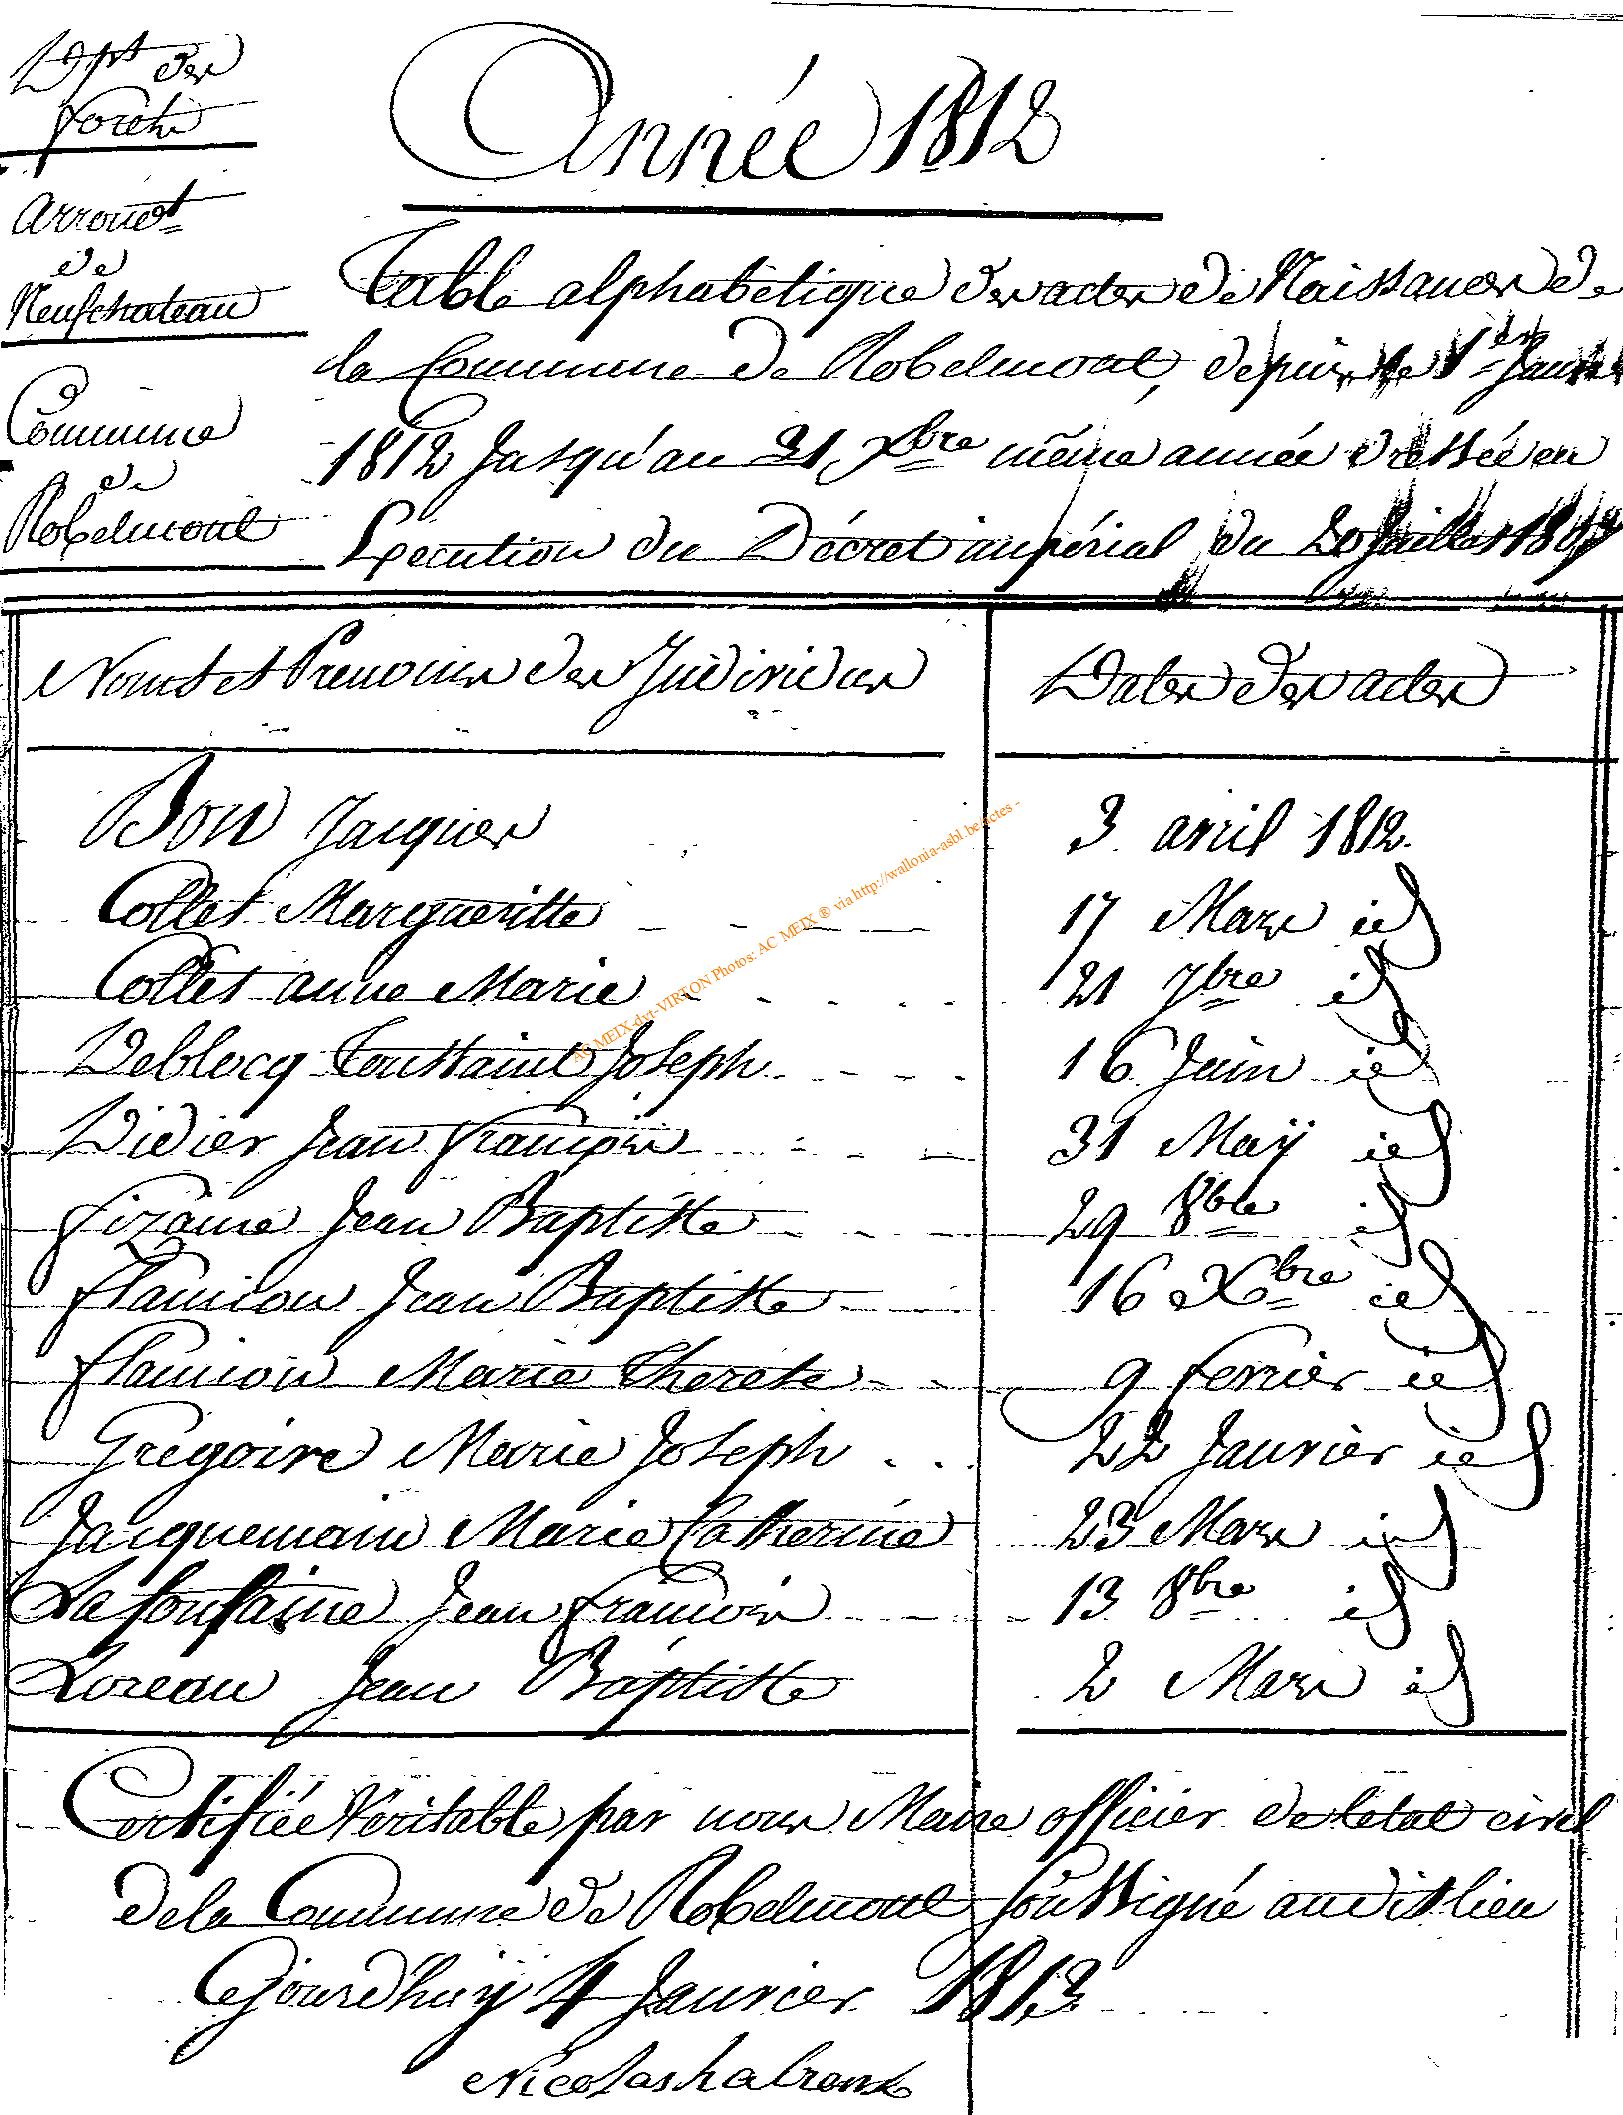 Dpt des
forets
Arrondt
de
Neufchateau
Commune
de
Robelmont
Année 1812
Table alphabétique des actes de Naissances de
la Commune de Robelmont, depuis le 1er Janvier
1812 Jusqu'au 31 Xbre même année dressée en
Execution du Décret impérial du 20 Juillet 1807
Noms et Prenoms des Individus
Dates des actes
Bon Jacques 3 avril 1812.
Collet Margueritte 17 Mars id
Collet anne Marie 21 7bre id
Deblocq Toussaint Joseph 16 Juin id
Didier Jean François 31 Maÿ id
Fizaine Jean Baptiste 29 8bre id
Flamion Jean Baptiste 16 Xbre id
Flamion Marie Therese 9 fevrier id
Gregoire Marie Joseph 22 Janvier id
Jacquemain Marie Catherine 23 Mars id
Lafontaine Jean François 13 8bre id
Loreau Jean Baptiste 2 Mars id
Certifiée Véritable par nous Maire officier de letat civil
de la Commune de Robelmont soussigné audit lieu
Cejourd'huy 4 Janvier 1813
Nicolas
AC MEIX-dvt-VIRTON Photos: AC MEIX ® via http://wallonia-asbl.be/actes -